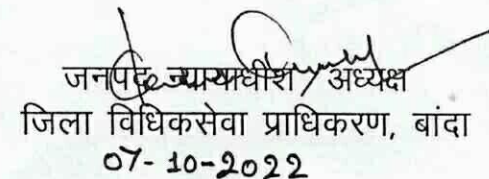 जनपद न्यायाधीश/अध्यक्ष
जिला विधिकसेवा प्राधिकरण, बांदा
07-10-2022